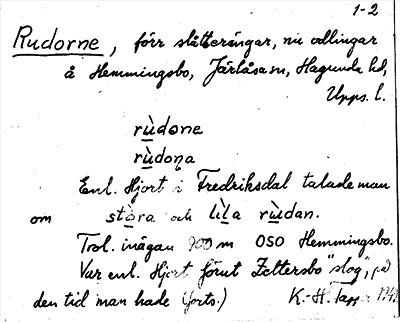 1-2
Rudorne, förr slåtterängar, nu odlingar
å Hemmingsbo, Järlåsa sn, Hagunda hd,
Upps. l.
rùdone
rùdoṇa
Enl. Hjort i Fredriksdal talade man
om stòra och lìla rùdan.
Trol. inägan 900 m OSO Hemmingsbo.
Var enl. Hjort förut Zettersbo "slog", på
den tid man hade (forts.) K.-H.